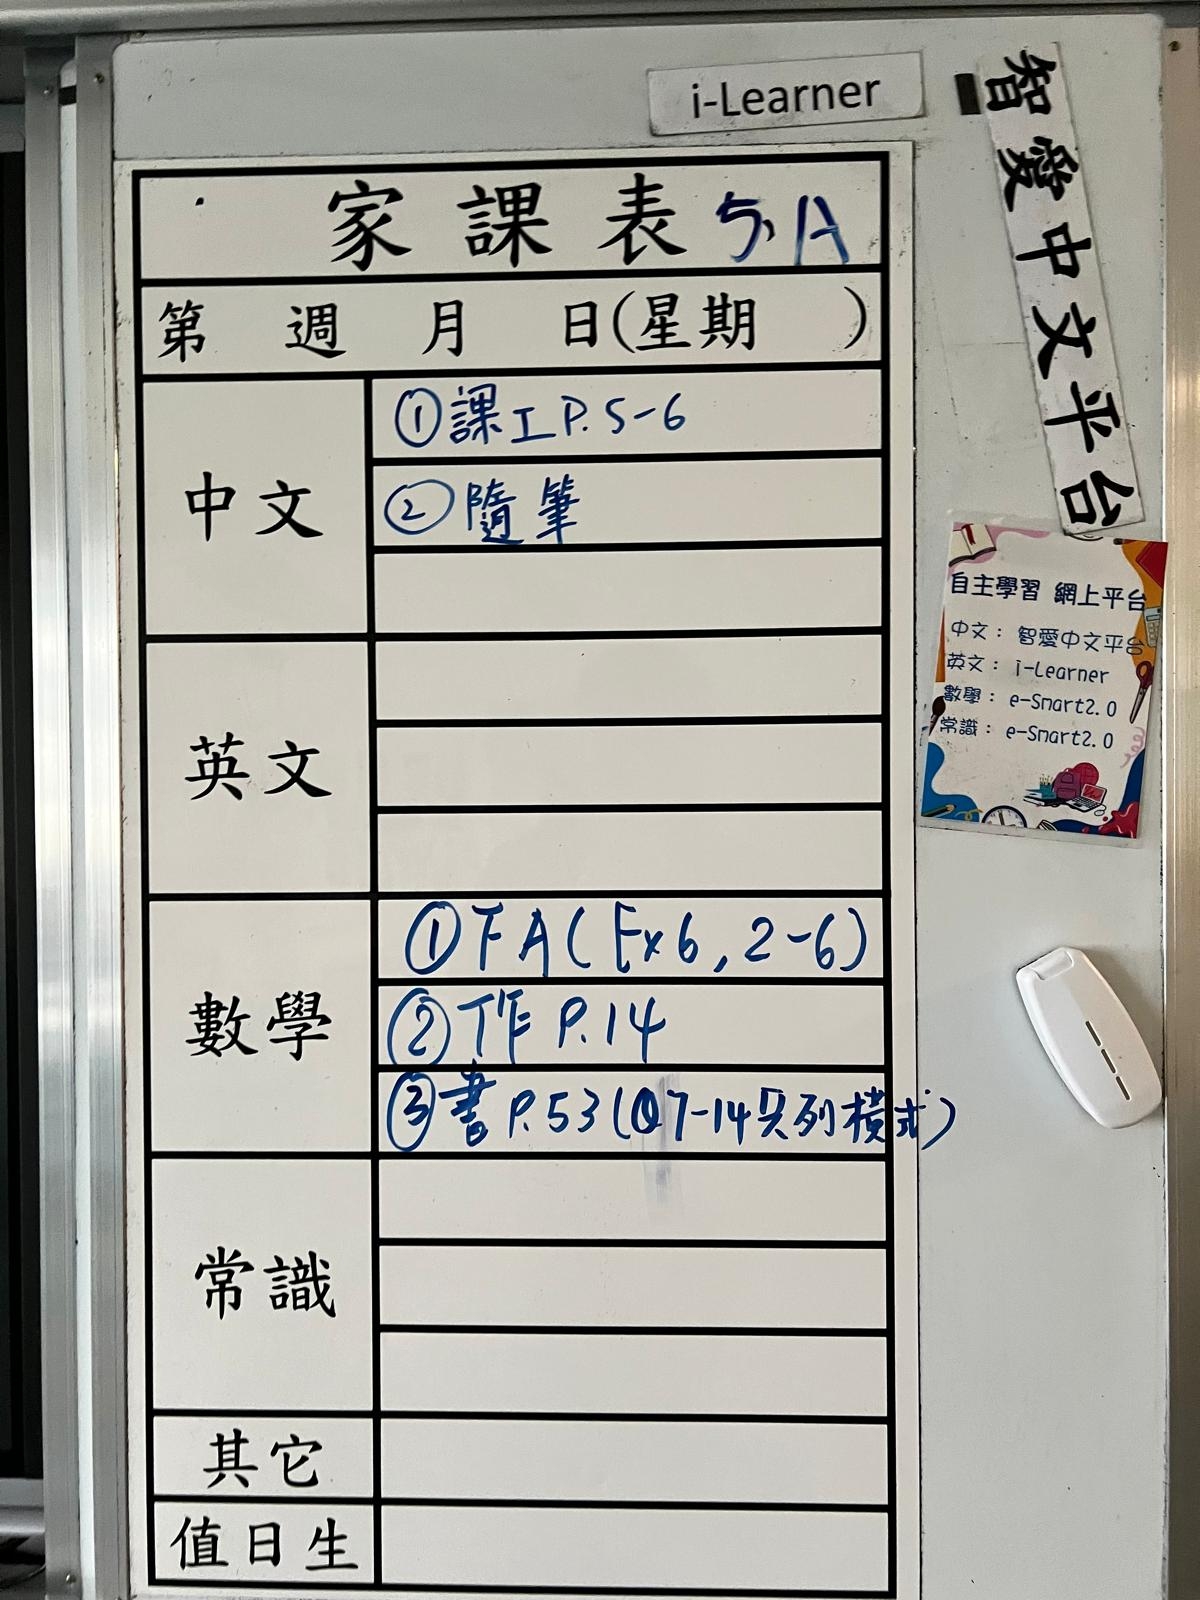 i-Learner
智愛中文平台
家課表 5A
第 週 月 日(星期 )
中文
①課工P.5-6
②隨筆
英文
數學
①FA(Ex6,2-6)
②作 P.14
③書P.53(Q7-14只列橫式)
常識
其它
值日生
自主學習 網上平台
中文: 智愛中文平台
英文: i-Learner
數學: e-Smart2.0
常識: e-Smart2.0